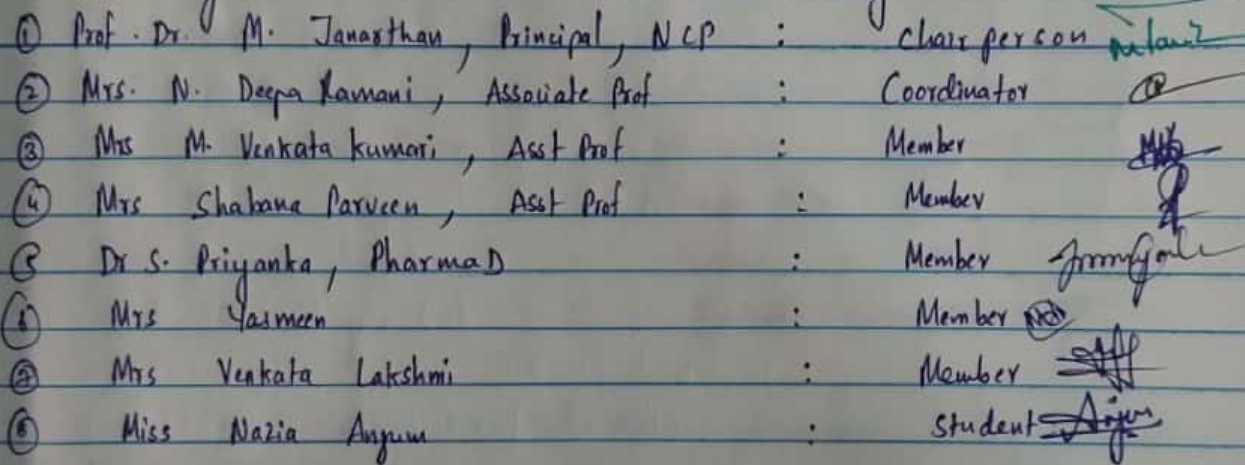 ① Prof. Dr. M. Janarthan, Principal, NCP : Chair person
② Mrs. N. Deepa Ramani, Associate Prof : Coordinator
③ Mrs M. Venkata kumari, Asst Prof : Member
④ Mrs Shabana Parveen, Asst Prof : Member
⑤ Dr S. Priyanka, PharmaD : Member
⑥ Mrs Yasmeen : Member
⑦ Mrs Venkata Lakshmi : Member
⑧ Miss Nazia Anjum : Student Anjum